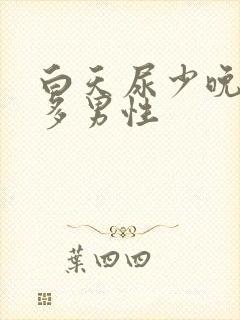 白天尿少晚
多男性
葉四四